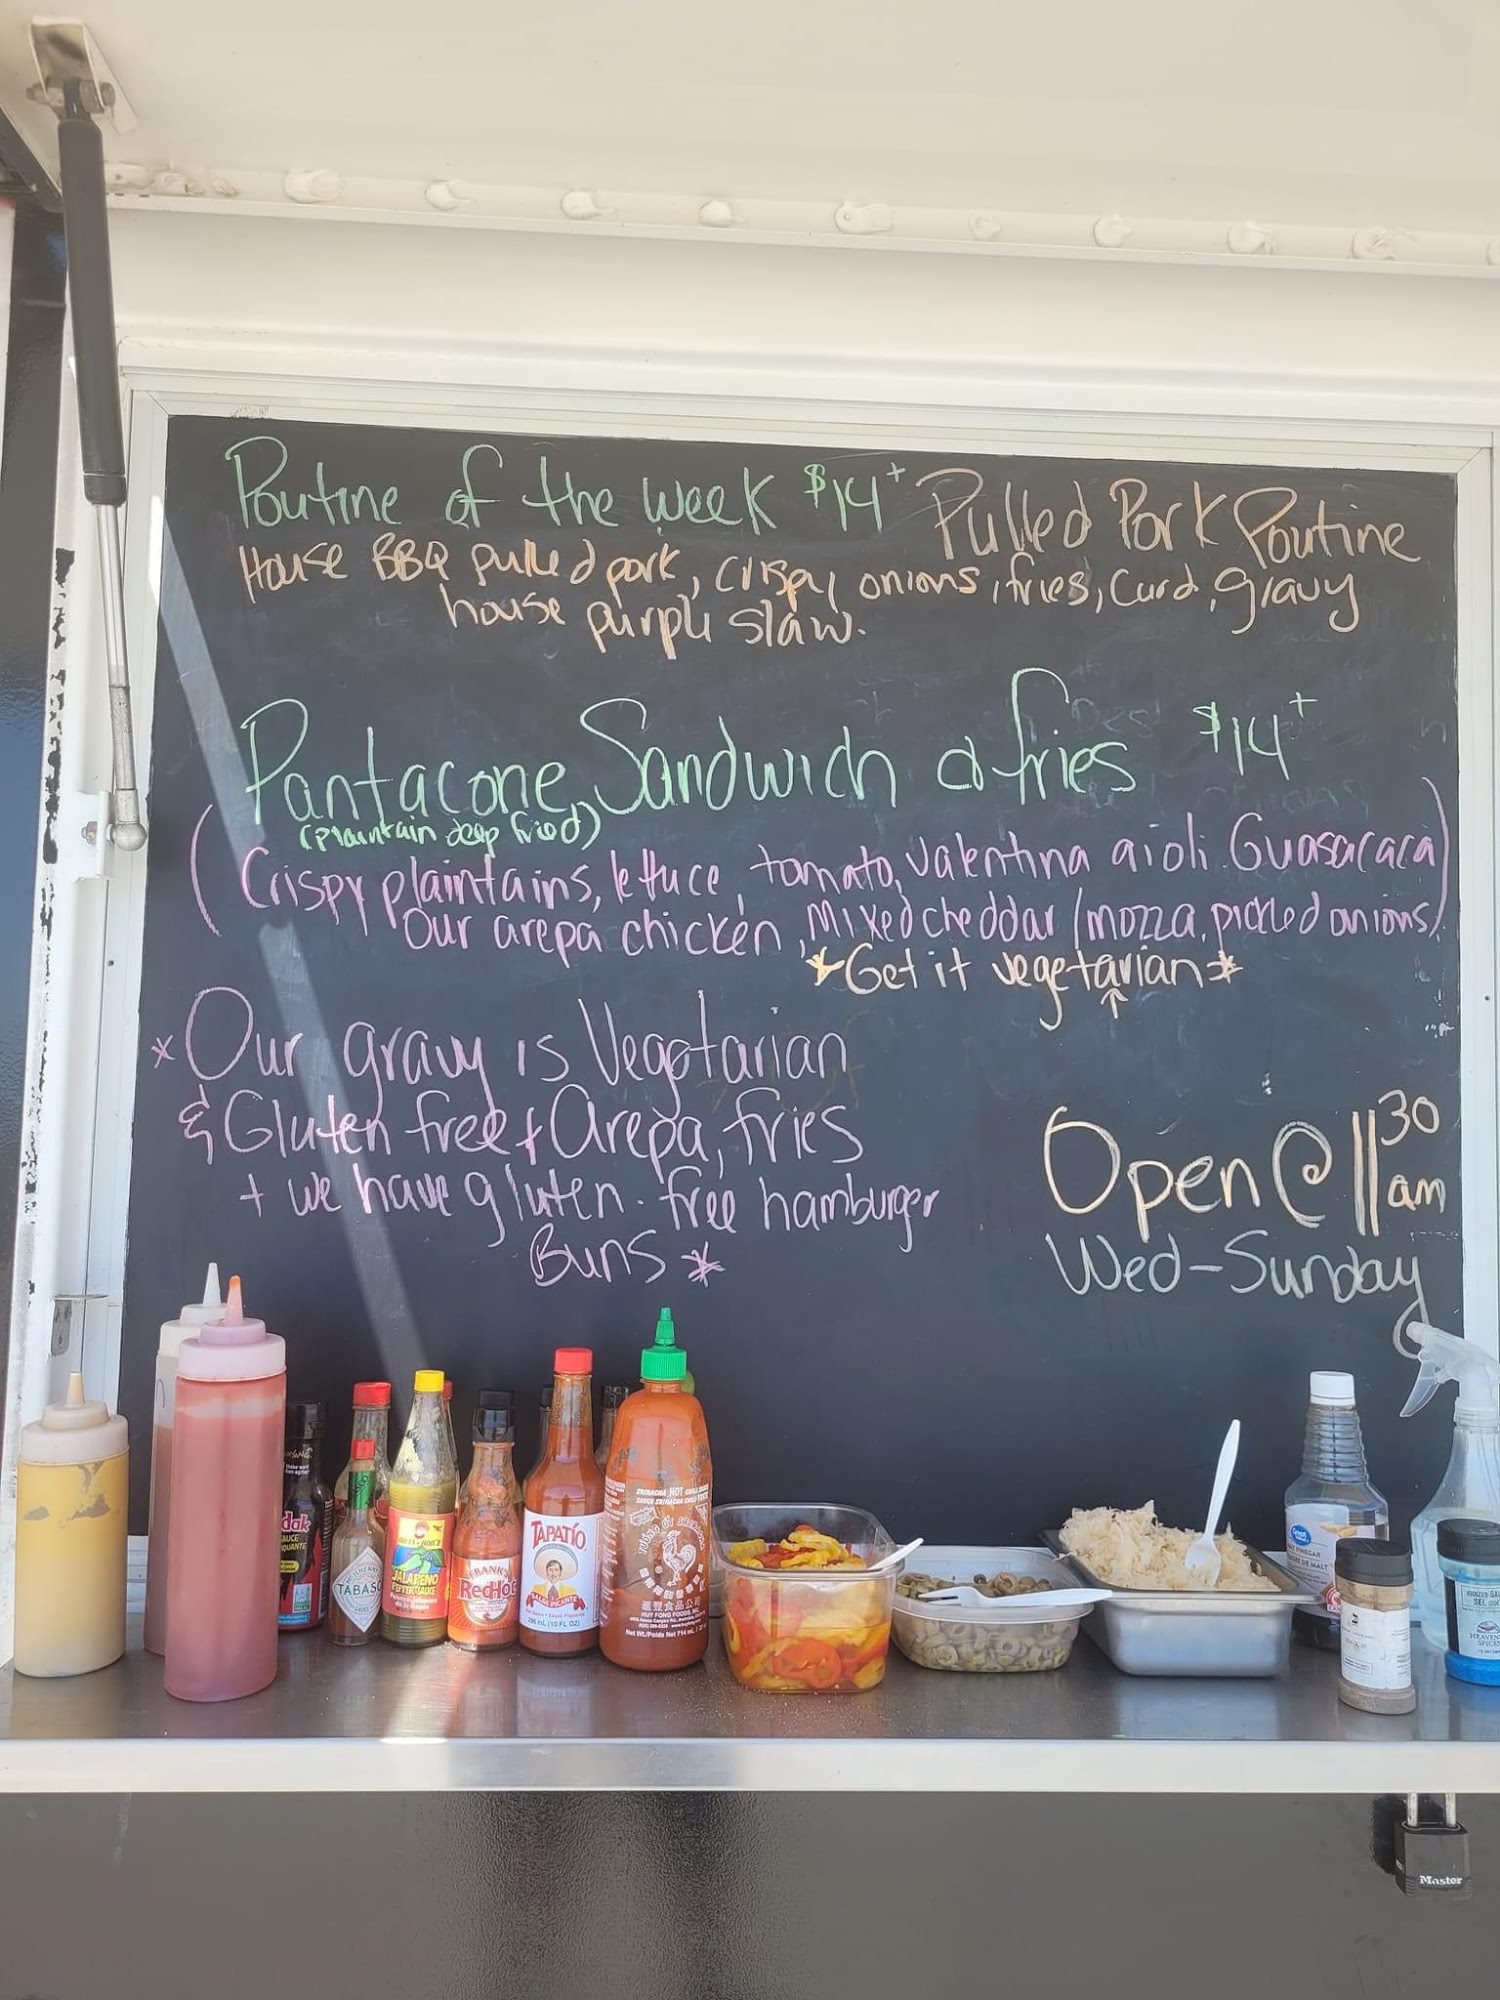 Poutine of the week $14+ Pulled Pork Poutine
House BBQ pulled pork, crispy onions, fries, curd, gravy
house purple slaw.
Pantacone Sandwich & fries $14+
(plaintain deep fried)
(Crispy plaintains, lettuce, tomato, valentina aioli. Guasacaca
our arepa chicken, mixed cheddar/mozza, pickled onions)
*Get it vegetarian*
*Our gravy is Vegetarian
& Gluten free + Arepa, fries
+ we have gluten-free hamburger
Buns *
Open @ 11 30 am
Wed-Sunday
TABASCO
JALAPENO
PEPPER SAUCE
FRANK'S
RedHot
TAPATÍO
SALSA PICANTE
SRIRACHA HOT CHILI SAUCE
HUY FONG FOODS, INC.
Great Value
Master